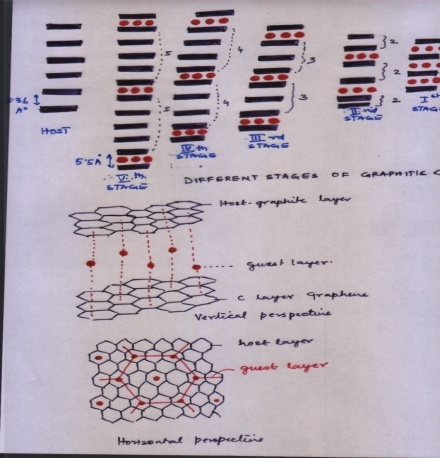 5
5
4
4
3
3
2
2
2
3.36
A°
HOST
5.5A°
V th
STAGE
IV th
STAGE
III rd
STAGE
II nd
STAGE
I st
STAGE
DIFFERENT STAGES OF GRAPHITIC
Host-graphite layer
guest layer.
C layer Graphene
Vertical perspective
host layer
guest layer
Horizontal perspective